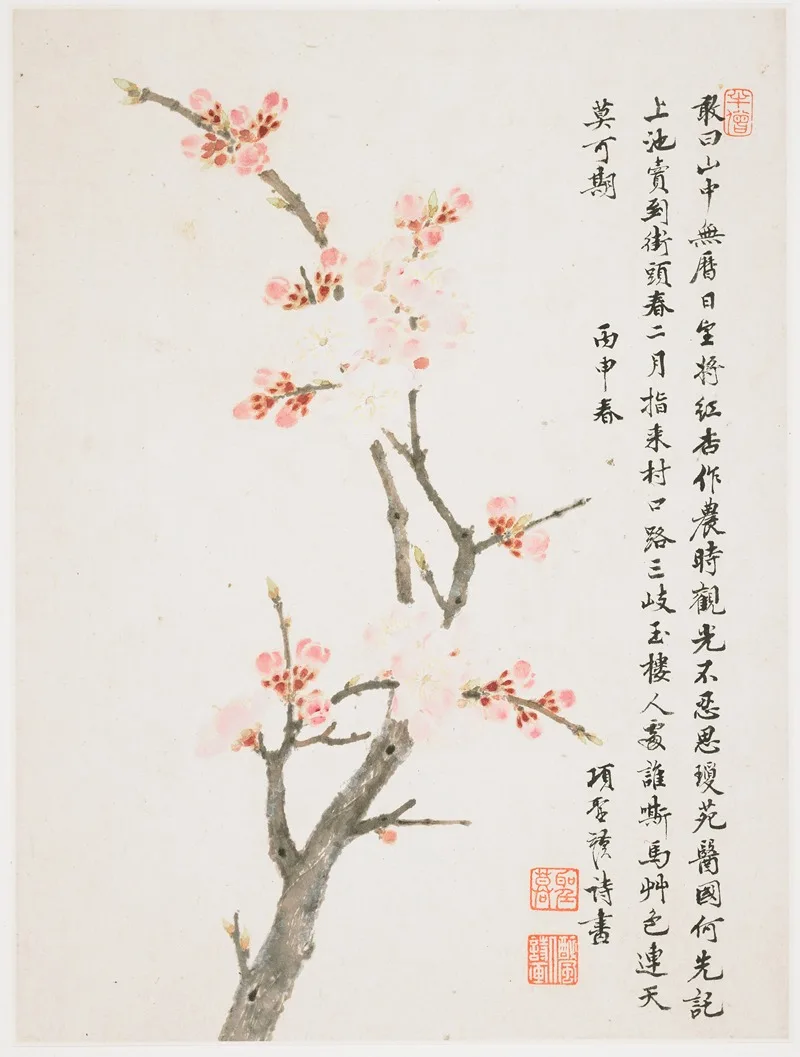 敢曰山中無曆日空將紅杏作農時觀光不忍思瓊苑醫國何先記
上池賣到街頭春二月指来村口路三岐玉樓人處誰嘶馬艸色連天
莫可期 丙申春 項聖謨詩書